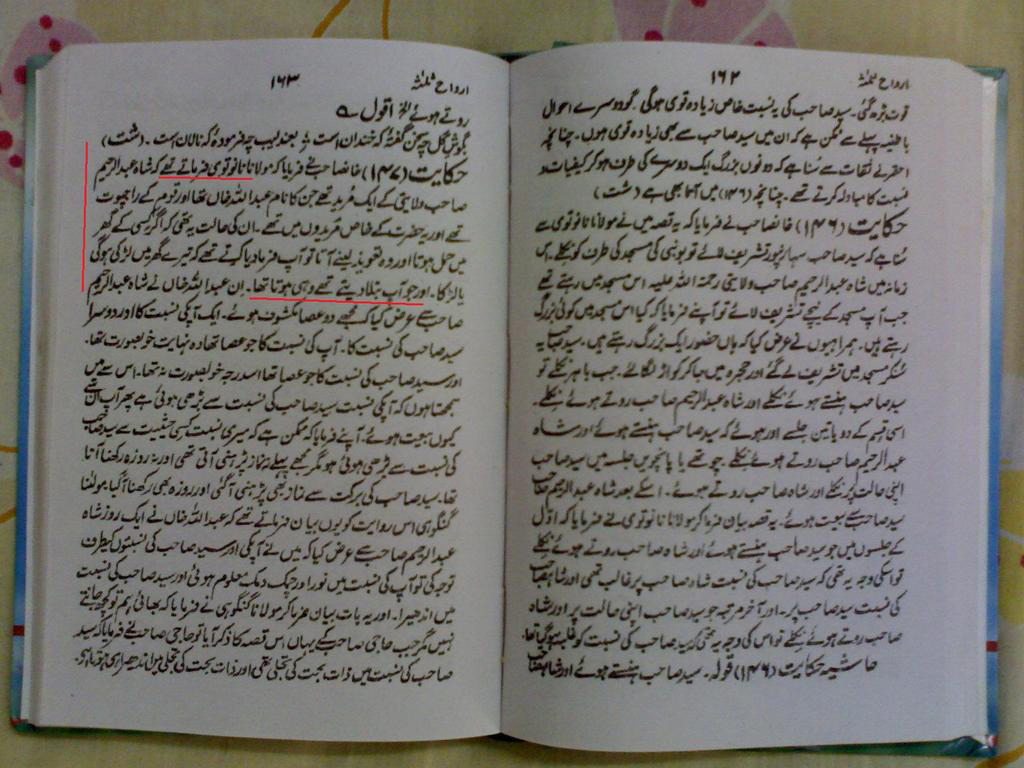 ارواح ثلثہ
۱۶۲
قوت بڑھ گئی۔ سید صاحب کی یہ نسبت خاص زیادہ قوی ہوگی۔ گو دوسرے احوال
باطنیہ پہلے سے ممکن ہے کہ ان میں سید صاحب سے بھی زیادہ قوی ہوں۔ چنانچہ
احقر نے ثقات سے سنا ہے کہ دونوں بزرگ ایک دوسرے کی طرف ہو کر کیفیات و
نسبت کا مبادلہ کرتے تھے۔ چنانچہ (۱۴۶) میں آتا بھی ہے (شت)
حکایت (۱۴۶) خانصاحب نے فرمایا کہ یہ قصہ میں نے مولانا نانوتوی سے
سنا ہے کہ سید صاحب سہارنپور تشریف لائے تو بونی کی مسجد کی طرف کو نکلے۔ اس
زمانہ میں شاہ عبدالرحیم صاحب ولایتی رحمۃ اللہ علیہ اس مسجد میں رہتے تھے
جب آپ مسجد کے نیچے تشریف لائے تو آپنے فرمایا کہ کیا اس مسجد میں کوئی بزرگ
رہتے ہیں۔ ہمراہیوں نے عرض کیا کہ ہاں حضور ایک بزرگ رہتے ہیں۔ سید صاحب یہ
سنکر مسجد میں تشریف لے گئے اور حجرہ میں جا کر کواڑ لگا لئے۔ جب باہر نکلے تو
سید صاحب ہنستے ہوئے نکلے اور شاہ عبدالرحیم صاحب روتے ہوئے نکلے۔
اسی قسم کے دو یا تین جلسے اور ہوئے کہ سید صاحب ہنستے ہوئے اور شاہ
عبدالرحیم صاحب روتے ہوئے نکلے۔ چوتھے یا پانچویں جلسہ میں سید صاحب
اپنی حالت پر نکلے اور شاہ صاحب روتے ہوئے۔ اسکے بعد شاہ عبدالرحیم صاحب
سید صاحب سے بیعت ہوئے۔ یہ قصہ بیان فرما کر مولانا نانوتوی نے فرمایا کہ اوّل
کے جلسوں میں جو سید صاحب ہنستے ہوئے اور شاہ صاحب روتے ہوئے نکلے
تو اسکی وجہ یہ تھی کہ سید صاحب کی نسبت شاہ صاحب پر غالب تھی اور شاہ صاحب
کی نسبت سید صاحب پر۔ اور آخر مرتبہ جو سید صاحب اپنی حالت پر اور شاہ
صاحب روتے ہوئے نکلے تو اس کی وجہ یہ تھی کہ سید صاحب کی نسبت کو غلبہ ہو گیا تھا۔
حاشیہ حکایت (۱۴۶) قولہ۔ سید صاحب ہنستے ہوئے اور شاہ صاحب
ارواح ثلثہ
۱۶۳
روتے ہوئے الخ اقول ۵
بگوش گل چہ سخن گفتۂ کہ خندان است ؛ بعندلیب چہ فرمودۂ کہ نالان است۔ (شت)
حکایت (۱۴۷) خانصاحب نے فرمایا کہ مولانا نانوتوی فرماتے تھے کہ شاہ عبدالرحیم
صاحب ولایتی کے ایک مرید تھے جن کا نام عبداللہ خاں تھا اور قوم کے راجپوت
تھے اور یہ حضرت کے خاص مریدوں میں تھے۔ ان کی حالت یہ تھی کہ اگر کسی کے گھر
میں حمل ہوتا اور وہ تعویذ لینے آتا تو آپ فرما دیا کرتے تھے کہ تیرے گھر میں لڑکی ہوگی
یا لڑکا۔ اور جو آپ بتلا دیتے تھے وہی ہوتا تھا۔ ان عبداللہ خاں نے شاہ عبدالرحیم
صاحب سے عرض کیا کہ مجھے دو عصا مکشوف ہوئے۔ ایک آپکی نسبت کا اور دوسرا
سید صاحب کی نسبت کا۔ آپ کی نسبت کا جو عصا تھا وہ نہایت خوبصورت تھا۔
اور سید صاحب کی نسبت کا جو عصا تھا اسدرجہ خوبصورت نہ تھا۔ اس سے میں
سمجھتا ہوں کہ آپکی نسبت سید صاحب کی نسبت سے بڑھی ہوئی ہے پھر آپ ان سے
کیوں بیعت ہوئے۔ آپنے فرمایا کہ ممکن ہے کہ میری نسبت کسی حیثیت سے سید صاحب
کی نسبت سے بڑھی ہوئی ہو مگر مجھے پہلے نہ نماز پڑھنی آتی تھی اور نہ روزہ رکھنا آتا
تھا۔ سید صاحب کی برکت سے نماز بھی پڑھنی آگئی اور روزہ بھی رکھنا آگیا۔ مولٰنا
گنگوہی اس روایت کو یوں بیان فرماتے تھے کہ عبداللہ خاں نے ایک روز شاہ
عبدالرحیم صاحب سے عرض کیا کہ میں نے آپکی اور سید صاحب کی نسبتوں کیطرف
توجہ کی تو آپ کی نسبت میں نور اور چمک دمک معلوم ہوئی اور سید صاحب کی نسبت
میں اندھیرا۔ اور یہ بات بیان فرما کر مولانا گنگوہی نے فرمایا کہ بھائی ہم تو کچھ جانتے
نہیں مگر جب حاجی صاحب کے یہاں اس قصہ کا ذکر آیا تو حاجی صاحب نے فرمایا کہ سید
صاحب کی نسبت میں ذات بحت کی تجلی تھی اور ذات بحت کی تجلی میں اندھیرا ہی ہوتا ہے۔